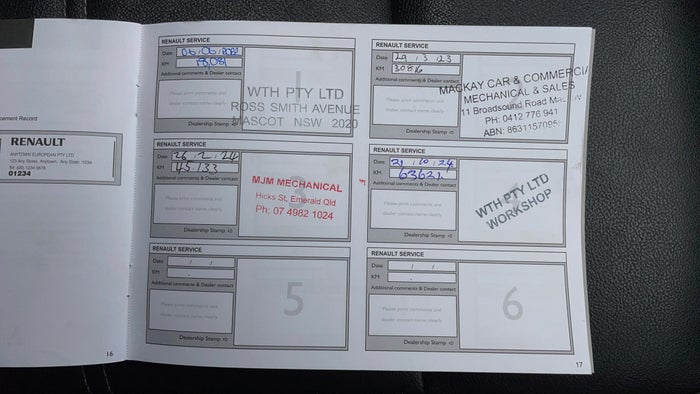 cement Record
RENAULT
ANYTOWN EUROPEAN PTY LTD
123 Any Street, Anytown, Any State 1234
Tel: (00) 1234 5678
01234
16
RENAULT SERVICE
Date 06.06.2022
KM
Additional comments & Dealer contact
Please print comments and
dealer contact name clearly
Dealership Stamp
1
WTH PTY LTD
ROSS SMITH AVENUE
MASCOT NSW 2020
RENAULT SERVICE
Date 29.3.23
KM
Additional comments & Dealer contact
Please print comments and
dealer contact name clearly
Dealership Stamp
MACKAY CAR & COMMERCIA
MECHANICAL & SALES
11 Broadsound Road
PH: 0412 776 941
ABN:
RENAULT SERVICE
Date 26.2.24
KM 45.133
Additional comments & Dealer contact
Please print comments and
dealer contact name clearly
Dealership Stamp
3
MJM MECHANICAL
Hicks St, Emerald Qld
Ph: 07 4982 1024
RENAULT SERVICE
Date 21.10.24
KM 63621
Additional comments & Dealer contact
Please print comments and
dealer contact name clearly
Dealership Stamp
WTH PTY LTD
WORKSHOP
RENAULT SERVICE
Date / /
KM .
Additional comments & Dealer contact
Please print comments and
dealer contact name clearly
Dealership Stamp
5
RENAULT SERVICE
Date / /
KM .
Additional comments & Dealer contact
Please print comments and
dealer contact name clearly
Dealership Stamp
6
17